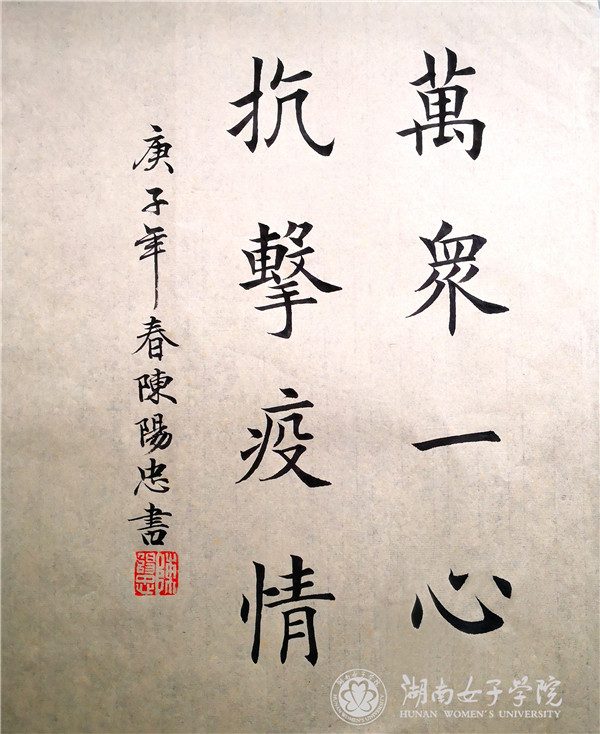 萬眾一心
抗擊疫情
庚子年春陳陽忠書
陳陽忠
湖南女子学院
HUNAN WOMEN'S UNIVERSITY